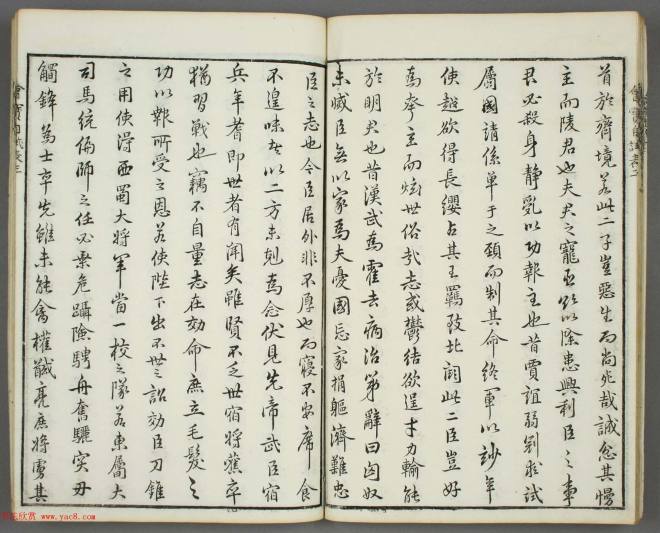 首於齊境若此二子豈惡生而尚死哉誠忿其慢
主而陵君也夫君之寵臣欲以除患興利臣之事
君必殺身靜亂以功報主也昔賈誼弱冠求試
屬國請係單于之頸而制其命終軍以妙年
使越欲得長纓占其王羈致北闕此二臣豈好
為夸主而炫世俗哉志或鬱結欲逞才力輸能
於明君也昔漢武為霍去病治第辭曰匈奴
未滅臣無以家為夫憂國忘家捐軀濟難忠
臣之志也今臣居外非不厚也而寢不安席食
不遑味者以二方未剋為念伏見先帝武臣宿
兵年耆即世者有聞矣雖賢不乏世宿將舊卒
猶習戰也竊不自量志在效命庶立毛髮之
功以報所受之恩若使陛下出不世之詔效臣刀錐
之用使得西蜀大將軍當一校之隊若東屬大
司馬統偏師之任必乘危躡險騁舟奮驪突刃
觸鋒為士卒先雖未能禽權馘亮庶將虜其
www.yac8.com